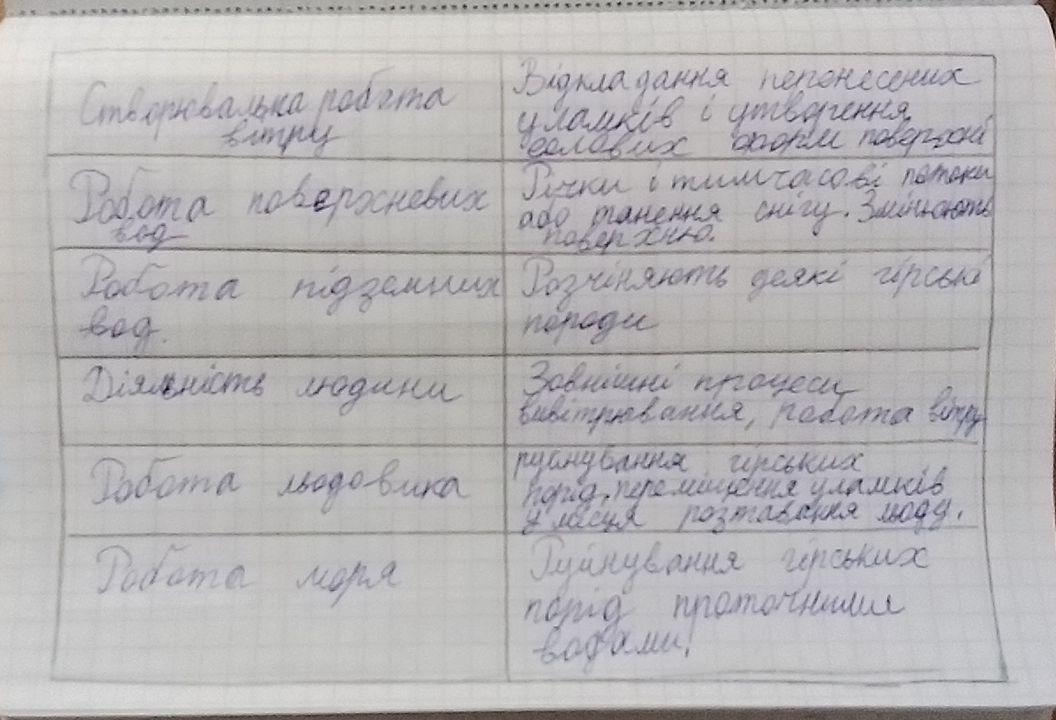 Створювальна робота
вітру
Відкладання перенесених
уламків і утворення
еолових форм поверхні
Робота поверхневих
вод
Річки і тимчасові потоки
або танення снігу. Змінюють
поверхню.
Робота підземних
вод.
Розчіняють деякі гірські
породи
Діяльність людини
Зовнішні процеси
вивітрювання, робота вітру
Робота льодовика
руйнування гірських
порід, переміщення уламків
у місця розтавання льоду.
Робота моря
Руйнування гірських
порід проточними
водами.